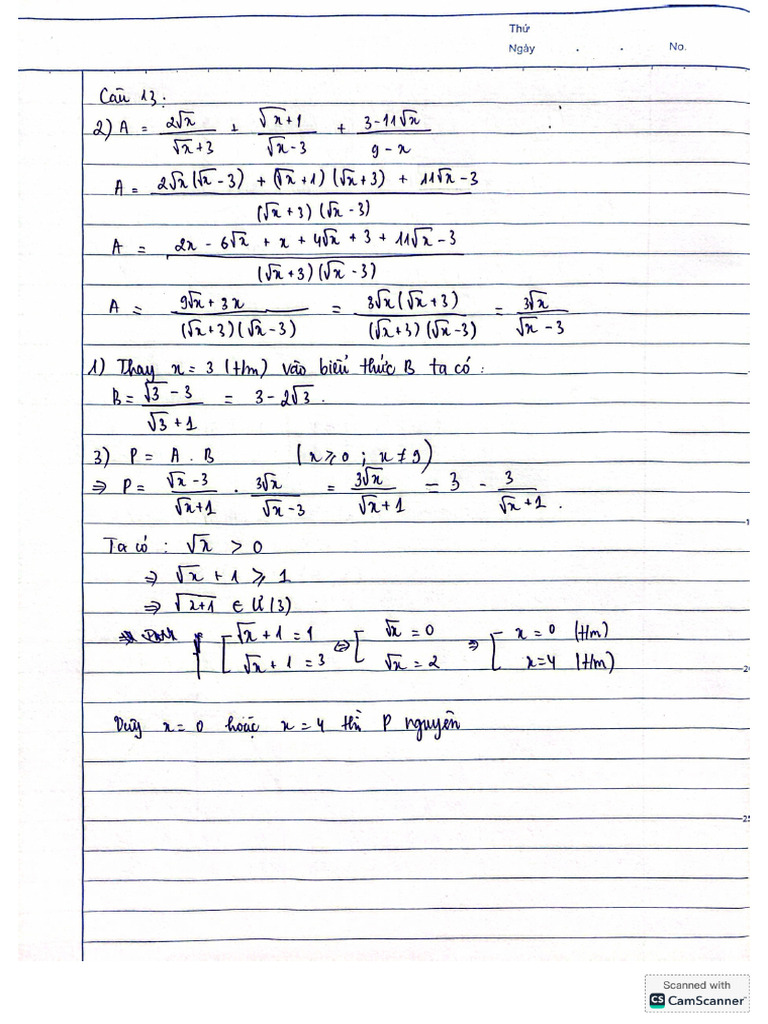 Thứ
Ngày . . No.
Câu 13:
2) A = 2√x/(√x+3) + (√x+1)/(√x-3) + (3-11√x)/(9-x)
A = (2√x(√x-3) + (√x+1)(√x+3) + 11√x-3)/((√x+3)(√x-3))
A = (2x - 6√x + x + 4√x + 3 + 11√x - 3)/((√x+3)(√x-3))
A = (9√x + 3x)/((√x+3)(√x-3)) = 3√x(√x+3)/((√x+3)(√x-3)) = 3√x/(√x-3)
1) Thay x = 3 (t/m) vào biểu thức B ta có:
B = (√3 - 3)/(√3 + 1) = 3 - 2√3.
3) P = A . B (x ⩾ 0 ; x ≠ 9)
⇒ P = (√x-3)/(√x+1) . 3√x/(√x-3) = 3√x/(√x+1) = 3 - 3/(√x+1).
Ta có : √x > 0
⇒ √x + 1 ⩾ 1
⇒ √(x+1) ∈ Ư(3)
[ √x + 1 = 1 ⇔ [ √x = 0 ⇒ [ x = 0 (t/m)
√x + 1 = 3 √x = 2 x = 4 (t/m)
Vậy x = 0 hoặc x = 4 thì P nguyên
Scanned with
CS CamScanner